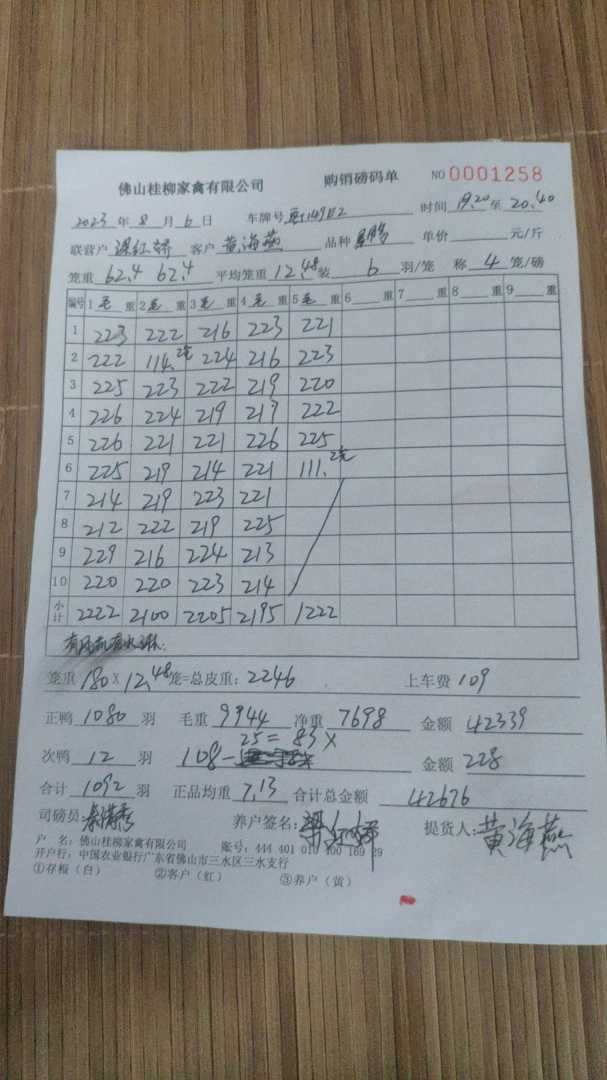 佛山桂柳家禽有限公司 购销磅码单 NO 0001258
2023 年 8 月 6 日 车牌号 时间 19.20 至 20.40
联营户 梁红娇 客户 黄海燕 品种 单价 元/斤
笼重 62.4 62.4 平均笼重 12.48 装 6 羽/笼 称 4 笼/磅
编号 1 毛 重 2 毛 重 3 毛 重 4 毛 重 5 毛 重 6 重 7 重 8 重 9 重
1 223 222 216 223 221
2 222 114.2笼 224 216 223
3 225 223 222 219 220
4 226 224 219 217 222
5 226 221 221 226 225
6 225 219 214 221 111.2笼
7 214 219 223 221
8 212 222 219 225
9 229 216 224 213
10 220 220 223 214
小计 2222 2100 2205 2195 1222
笼重 180 × 12.48 笼=总皮重: 2246 上车费 109
正鸭 1080 羽 毛重 9944 净重 7698 金额 42339
25 = 83 ×
次鸭 12 羽 108- 金额 228
合计 1092 羽 正品均重 7.13 合计总金额 42676
司磅员: 养户签名: 梁红娇 提货人: 黄海燕
户 名: 佛山桂柳家禽有限公司 账号: 444 401 010 400 169 29
开户行: 中国农业银行广东省佛山市三水区三水支行
①存根（白） ②客户（红） ③养户（黄）